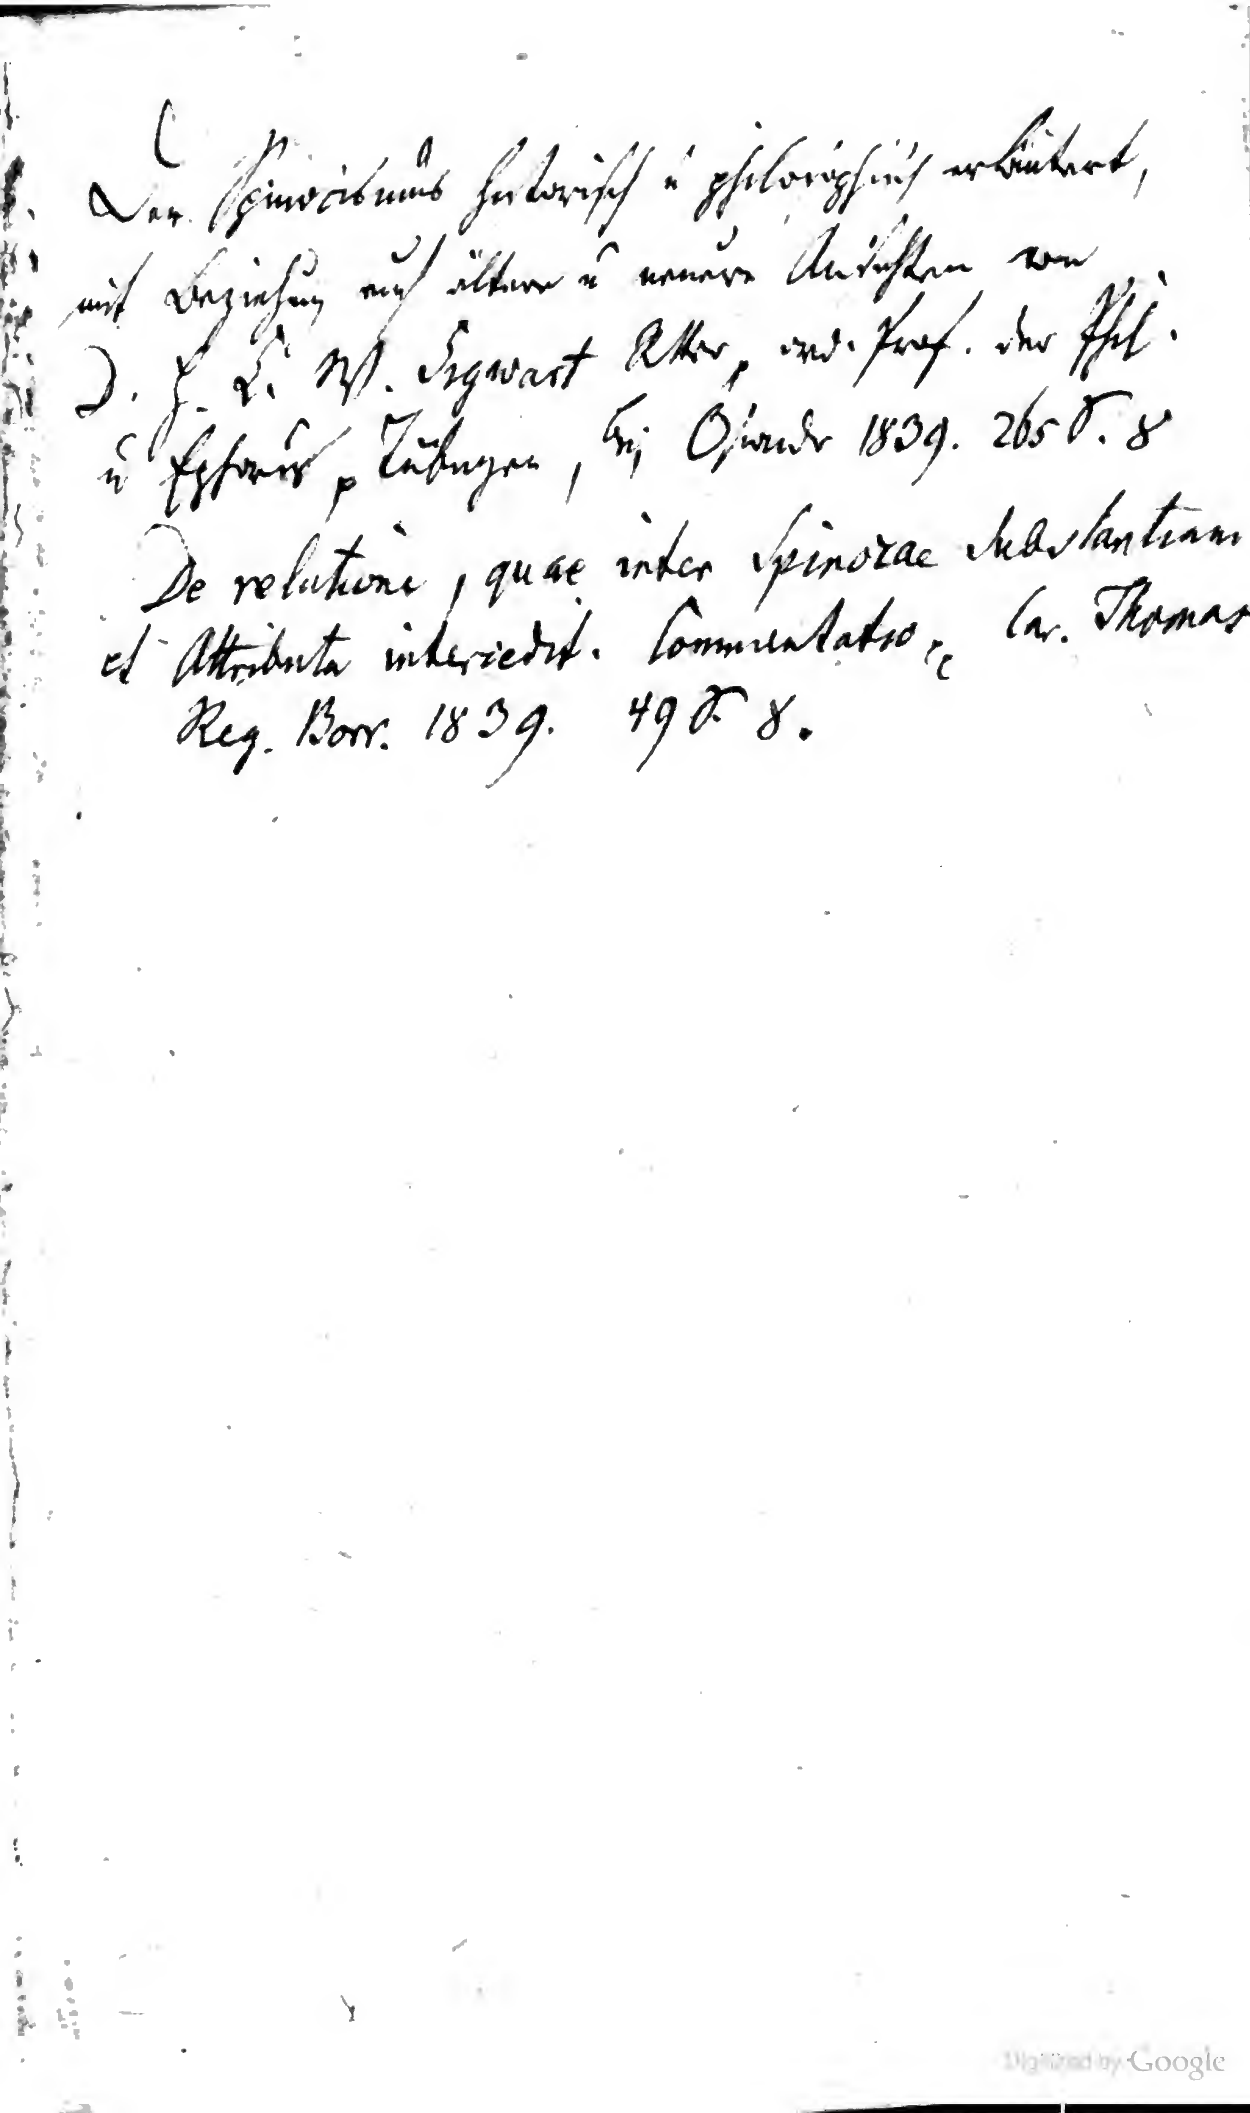 Der Spinocismus historisch u philosophisch erläutert,
mit Beziehung auf ältere u neuere Ansichten von
D. H. C. W. Sigwart Ritter, ord. Prof. der Phil.
u Ephorus p Tübingen, bej Osiander 1839. 265 S. 8
De relatione, quae inter Spinozae Substantiam
et Attributa intercedit. Commentatio Car. Thomas
Reg. Borr. 1839. 49 S. 8.
Digitized by Google